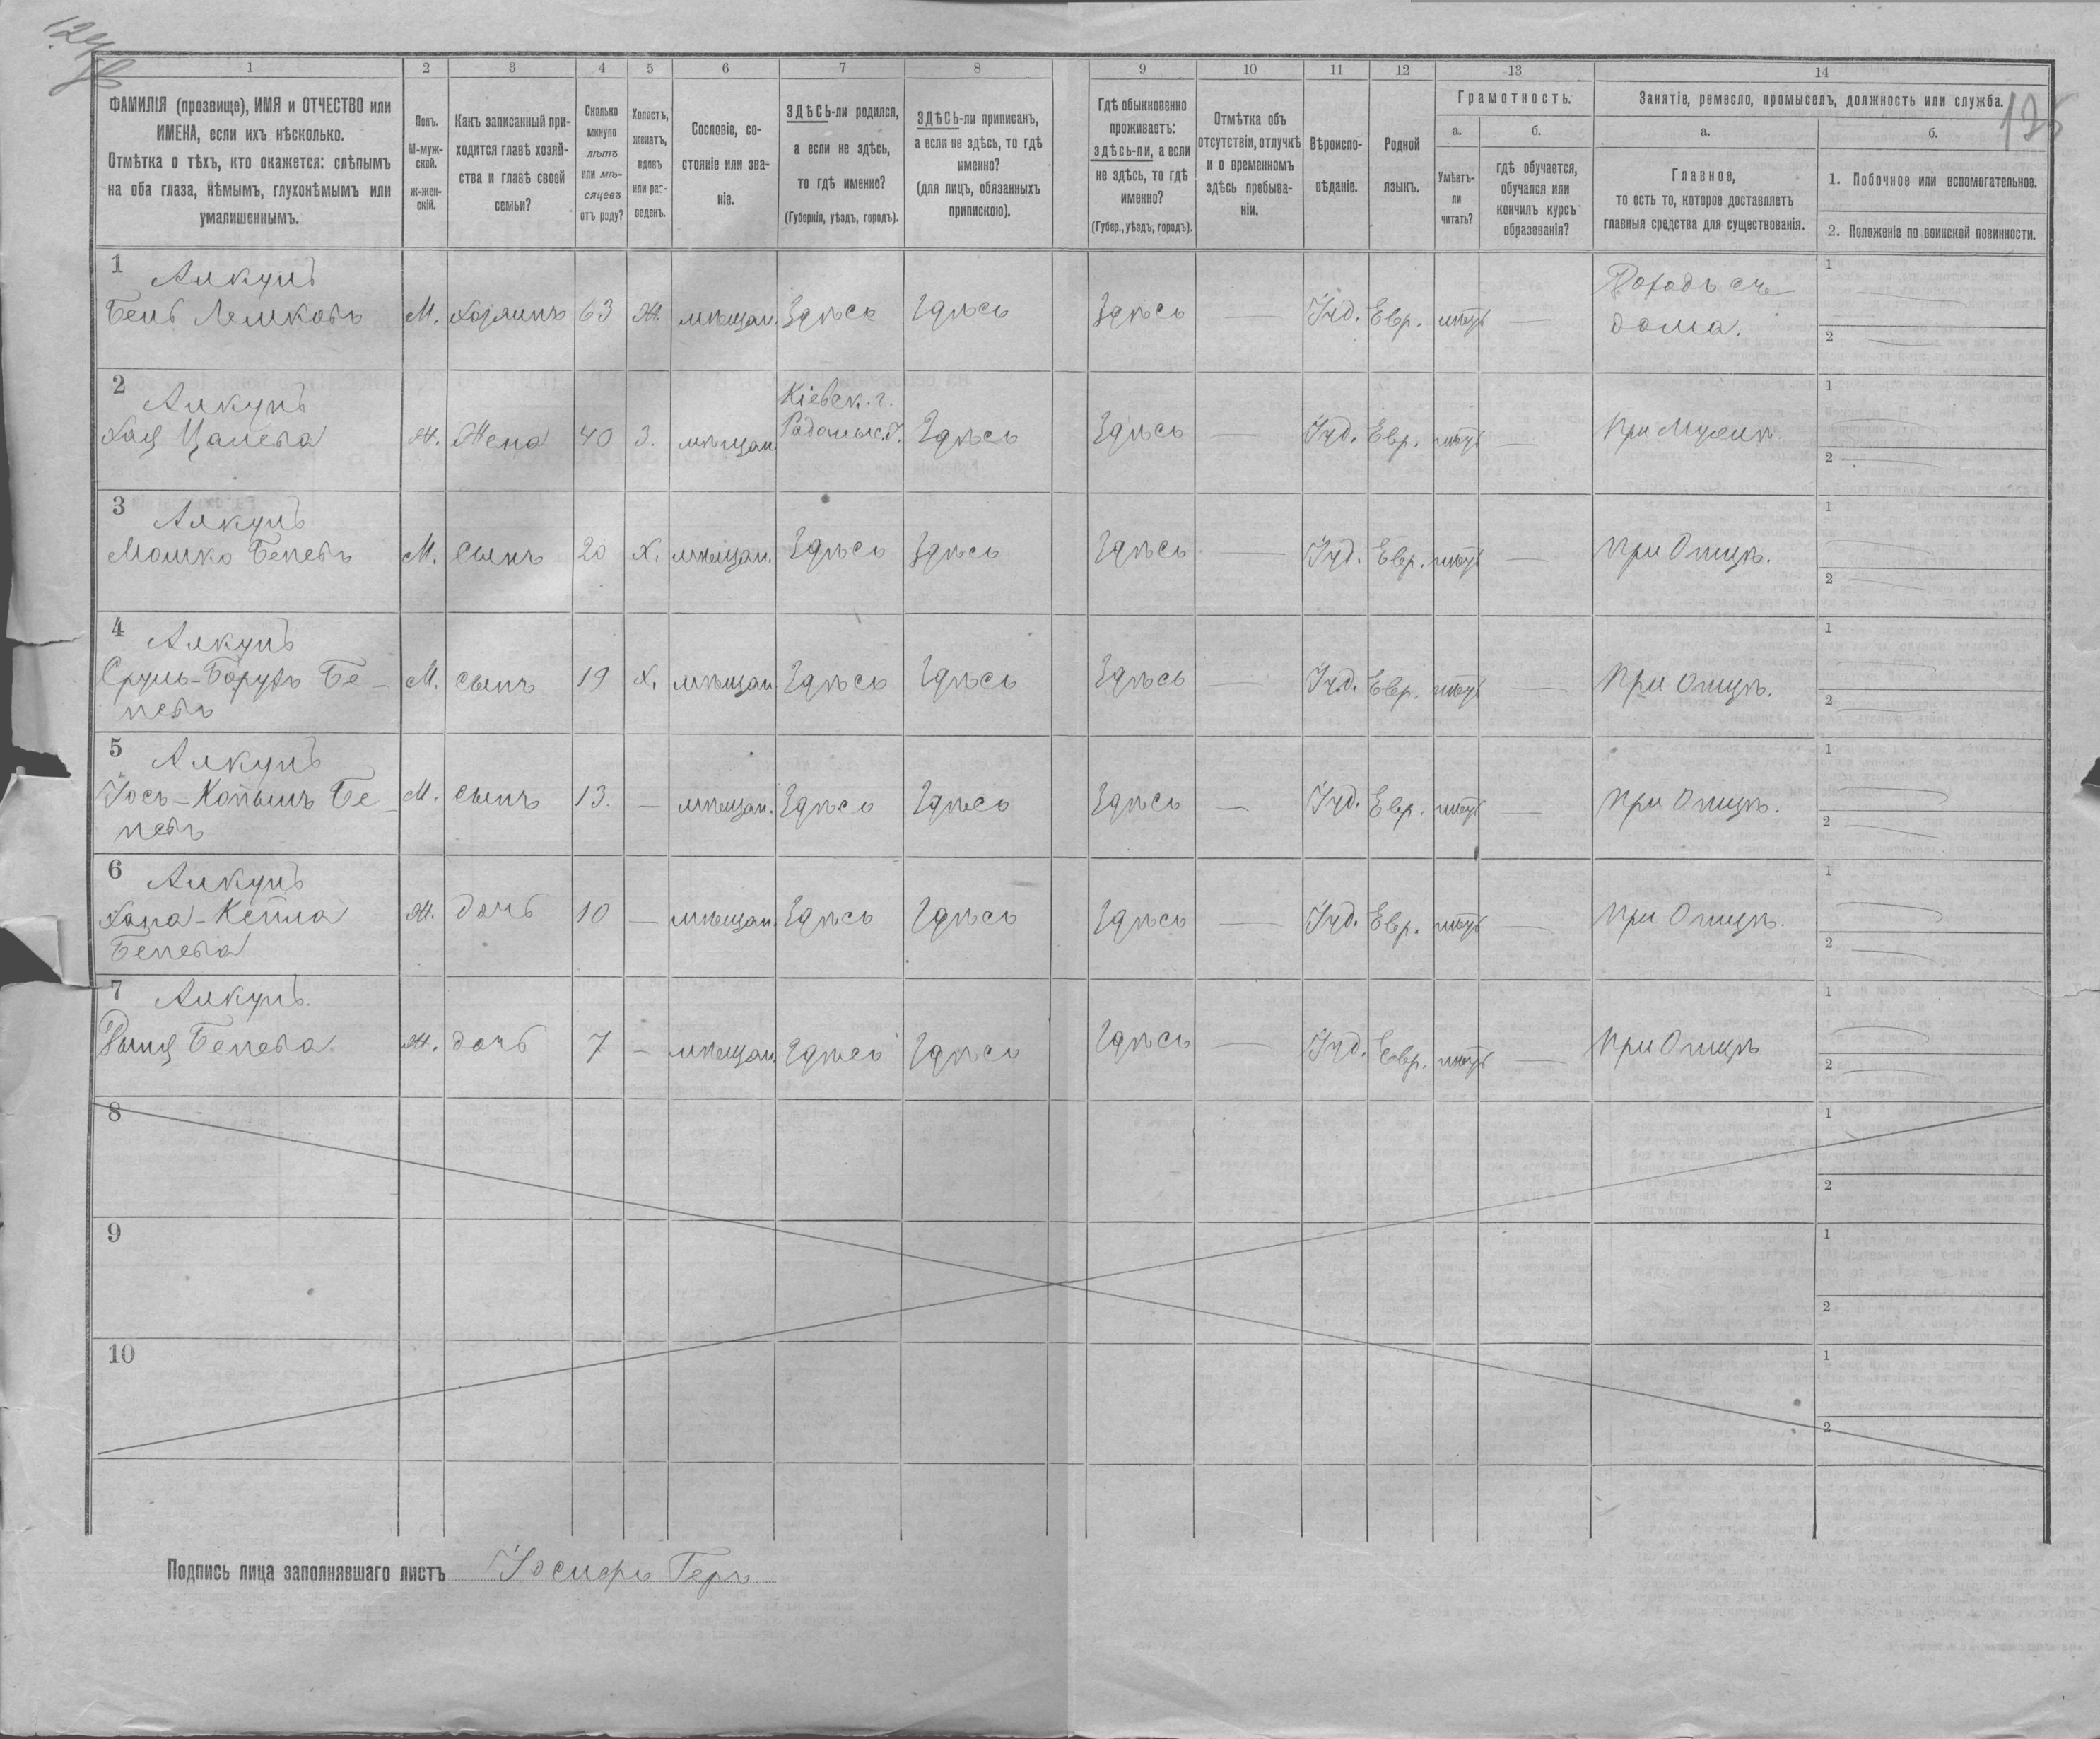 1 2 3 4 5 6 7 8 9 10 11 12 13 14
ФАМИЛІЯ (прозвище), ИМЯ и ОТЧЕСТВО или
ИМЕНА, если ихъ нѣсколько.
Отмѣтка о тѣхъ, кто окажется: слѣпымъ
на оба глаза, нѣмымъ, глухонѣмымъ или
умалишеннымъ.
Полъ.
М-муж-
ской.
ж-жен-
скій.
Какъ записанный при-
ходится главѣ хозяй-
ства и главѣ своей
семьи?
Сколько
минуло
лѣтъ
или мѣ-
сяцевъ
отъ роду?
Холостъ,
женатъ,
вдовъ
или раз-
веденъ.
Сословіе, со-
стояніе или зва-
ніе.
ЗДѢСЬ-ли родился,
а если не здѣсь,
то гдѣ именно?
(Губернія, уѣздъ, городъ).
ЗДѢСЬ-ли приписанъ,
а если не здѣсь, то гдѣ
именно?
(для лицъ, обязанныхъ
припискою).
Гдѣ обыкновенно
проживаетъ:
здѣсь-ли, а если
не здѣсь, то гдѣ
именно?
(Губер., уѣздъ, городъ).
Отмѣтка объ
отсутствіи, отлучкѣ
и о временномъ
здѣсь пребыва-
ніи.
Вѣроиспо-
вѣданіе.
Родной
языкъ.
Грамотность.
а.
Умѣетъ-
ли
читать?
б.
гдѣ обучается,
обучался или
кончилъ курсъ
образованія?
Занятіе, ремесло, промыселъ, должность или служба.
а.
Главное,
то есть то, которое доставляетъ
главныя средства для существованія.
б.
1. Побочное или вспомогательное.
2. Положеніе по воинской повинности.
1 Алкунъ 1
Бень М. Хозяинъ 63 Ж. мѣщан. Здѣсь Здѣсь Здѣсь — Іуд. Евр. нѣтъ — Доходъ съ
дома. 2
2 Алкунъ Кіевск. г. 1
Ж. Жена 40 З. мѣщан. Здѣсь Здѣсь — Іуд. Евр. нѣтъ — при Мужѣ. 2
3 Алкунъ 1
Мошко Беневъ М. сынъ 20 Х. мѣщан. Здѣсь Здѣсь Здѣсь — Іуд. Евр. нѣтъ — при Отцѣ. 2
4 Алкунъ 1
Сруль-Борухъ Бе-
невъ М. сынъ 19 Х. мѣщан Здѣсь Здѣсь Здѣсь — Іуд. Евр. нѣтъ — при Отцѣ. 2
5 Алкунъ 1
Іось- Бе-
невъ М. сынъ 13. — мѣщан. Здѣсь Здѣсь Здѣсь — Іуд. Евр. нѣтъ — при Отцѣ. 2
6 Алкунъ 1
Хана-Кейла
Бенева Ж. дочь 10 — мѣщан. Здѣсь Здѣсь Здѣсь — Іуд. Евр. нѣтъ — при Отцѣ. 2
7 Алкунъ. 1
Бенева Ж. дочь 7 — мѣщан. Здѣсь Здѣсь Здѣсь — Іуд. Евр. нѣтъ — при Отцѣ 2
8 1
2
9 1
2
10 1
2
Подпись лица заполнявшаго листъ Іосифъ Геръ